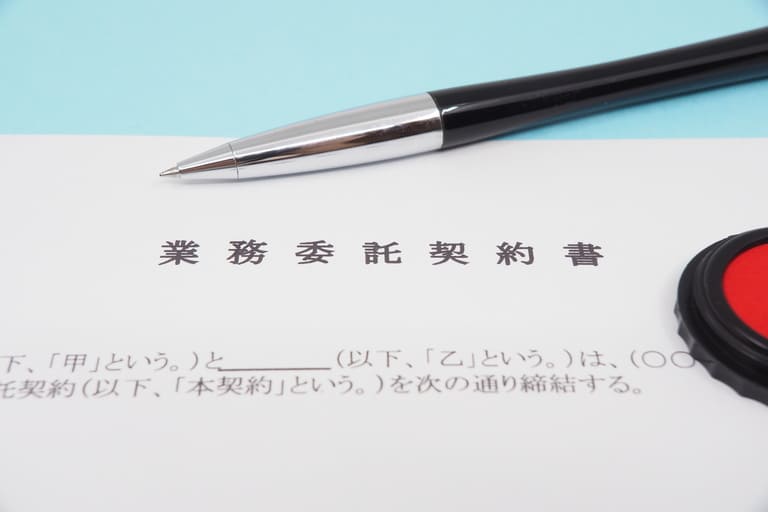 業務委託契約書
下、「甲」という。)と______(以下、「乙」という。)は、(〇〇
託契約(以下、「本契約」という。)を次の通り締結する。